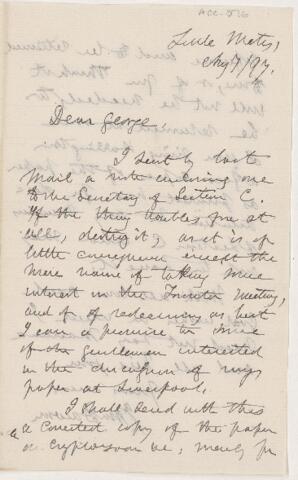 ACC-516
Little Metis,
Aug 7/97.
Dear George,
I sent by last
mail a note enclosing one
to the Secretary of Section C.
If the thing troubles you at
all, destroy it, as it is of
little consequence except the
mere name of taking some
interest in the Toronto Meeting,
and of redeeming as best
I can a promise to some
of the gentlemen interested
in the discussion of my
paper at Liverpool.
I shall send with this
a corrected copy of the paper
on Cryptozoon &c, merely for